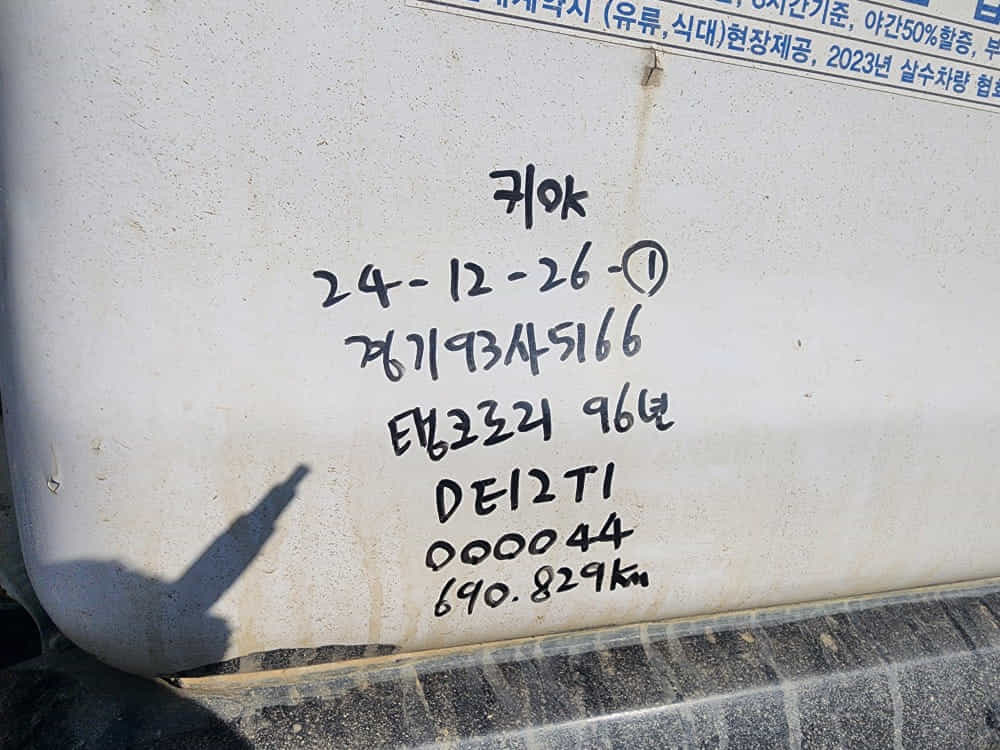 8시간기준, 야간50%할증, 부
계약시 (유류,식대)현장제공, 2023년 살수차량 협회
귀야
24-12-26-①
경기93사5166
탱크로리 96년
DE12TI
000044
690.829km